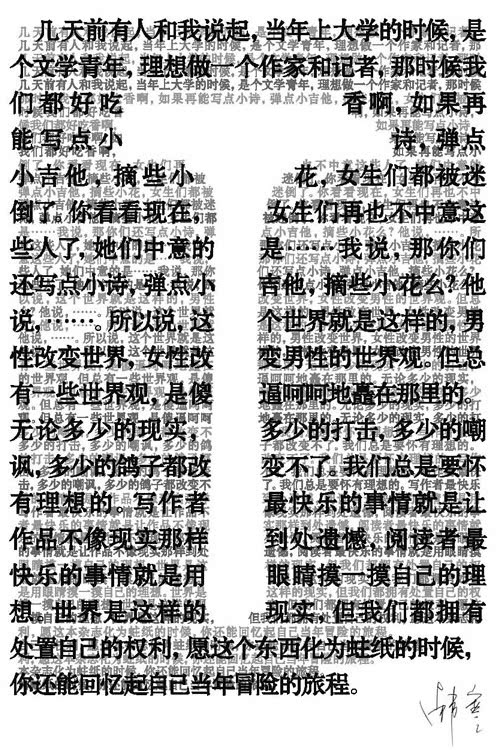 几天前有人和我说起，当年上大学的时候，是
个文学青年，理想做一个作家和记者，那时候我
们都好吃香啊，如果再
能写点小诗，弹点
小吉他，摘些小花，女生们都被迷
倒了。你看看现在，女生们再也不中意这
些人了，她们中意的是……我说，那你们
还写点小诗，弹点小吉他，摘些小花么？他
说，……。所以说，这个世界就是这样的，男
性改变世界，女性改变男性的世界观。但总
有一些世界观，是傻逼呵呵地矗在那里的。
无论多少的现实，多少的打击，多少的嘲
讽，多少的鸽子都改变不了。我们总是要怀
有理想的。写作者最快乐的事情就是让
作品不像现实那样到处遗憾，阅读者最
快乐的事情就是用眼睛摸一摸自己的理
想。世界是这样的现实，但我们都拥有
处置自己的权利，愿这个东西化为蛀纸的时候，
你还能回忆起自己当年冒险的旅程。